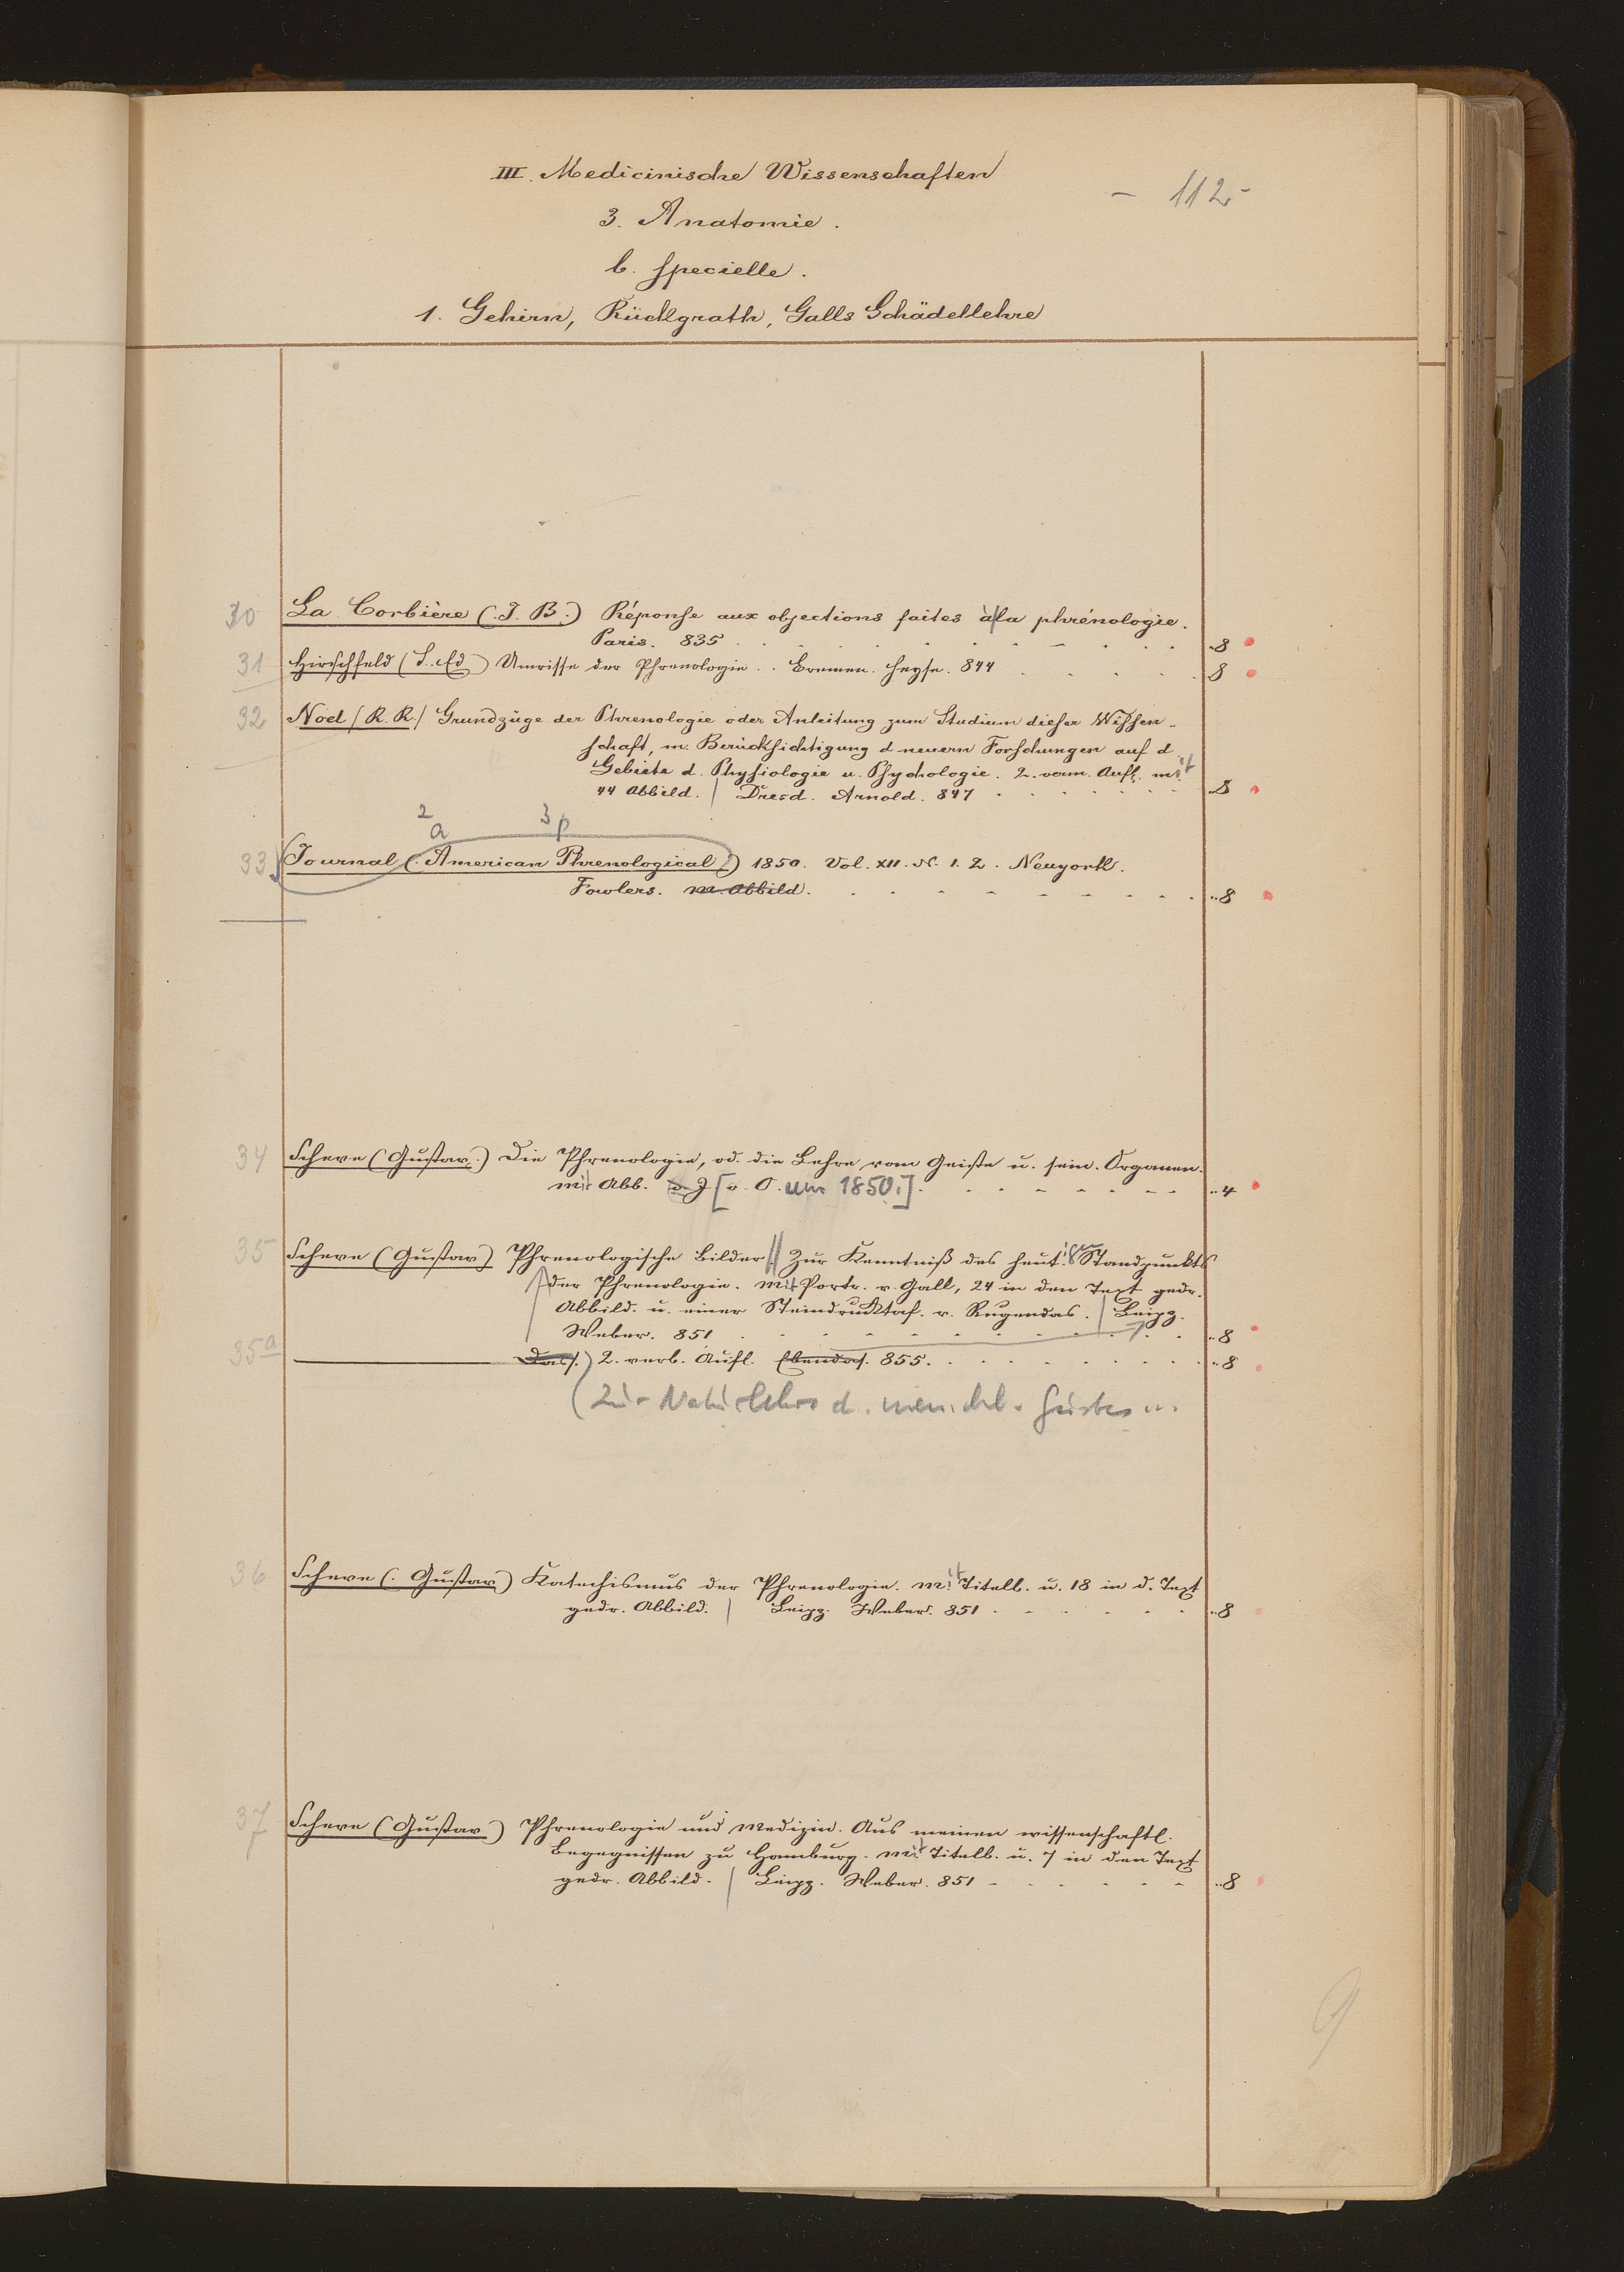 III. Medicinische Wissenschaften
- 112 -
3. Anatomie.
b. specielle.
1. Gehirn, Rückgrath, Galls Schädellehre
30 La Corbière (J. B.) Réponse aux objections faites à la phrénologie.
Paris. 835 . . . 8
31 Hirschfeld (L. Ed) Umrisse der Phrenologie . . Bremen. Heyse. 844 . . . 8
32 Noel (R. R.) Grundzüge der Phrenologie oder Anleitung zum Studium dieser Wissen-
schaft, m. Berücksichtigung d neuern Forschungen auf d.
Gebiete d. Physiologie u. Psychologie. 2. verm. Aufl. mit
44 Abbild. | Dresd. Arnold. 847 . . . 8
2 a 3 p
33 Journal (American Phrenological) 1850. Vol. XII. N. 1. 2. Neuyork.
Fowlers. m. Abbild. . . . 8
34 Scheve (Gustav.) Die Phrenologie, od. die Lehre vom Geiste u. sein. Organen.
mit Abb. o. J [o. O. um 1850.] . . . 4
35 Scheve (Gustav) Phrenologische Bilder || Zur Kenntniß des heutigen Standpunkts
der Phrenologie. Mit Portr. v. Gall, 24 in den Text gedr.
Abbild. u. einer Steindrucktaf. v. Rugendas. | Leipz.
Weber. 851 . . . 8
35a Dass.) 2. verb. Aufl. Ebendas. 855. . . . 8
(Zur Naturlehre d. menschl. Geistes
36 Scheve (Gustav) Katechismus der Phrenologie. Mit Titelb. u. 18 in d. Text
gedr. Abbild. | Leipz. Weber. 851 . . . 8
37 Scheve (Gustav) Phrenologie und Medizin. Aus meinen wissenschaftl.
Begegnissen zu Hamburg. Mit Titelb. u. 7 in den Text
gedr. Abbild. | Leipz. Weber. 851 . . . 8
9